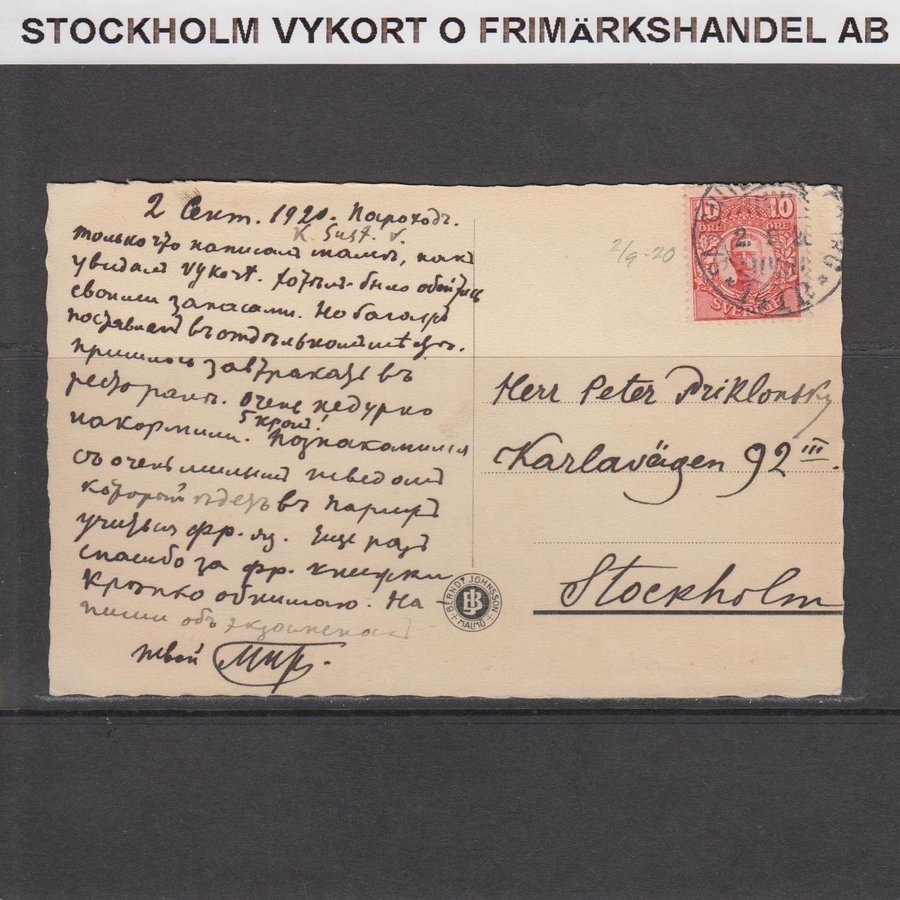 STOCKHOLM VYKORT O FRIMÄRKSHANDEL AB
2 Сент. 1920. Пароходъ.
K. Gust. V.
только что написалъ мамѣ, какъ
увидалъ vykort. Хотѣлъ было обойтись
своими запасами. Но багажъ
поставленъ въ отдѣльномъ мѣстѣ.
пришлось завтракать въ
ресторанѣ. очень недурно
накормили. 5 кронъ! Познакомился
съ очень милымъ шведомъ
который ѣдетъ въ Парижъ
учиться фр. яз. Еще разъ
спасибо за фр. книжки
Крѣпко обнимаю. На
пиши объ экзаменахъ
твой
2/9-20
10 10
ÖRE ÖRE
SVERIGE
Herr Peter Priklonsky
Karlavägen 92 III.
Stockholm
BERNDT JOHNSSON
MALMÖ